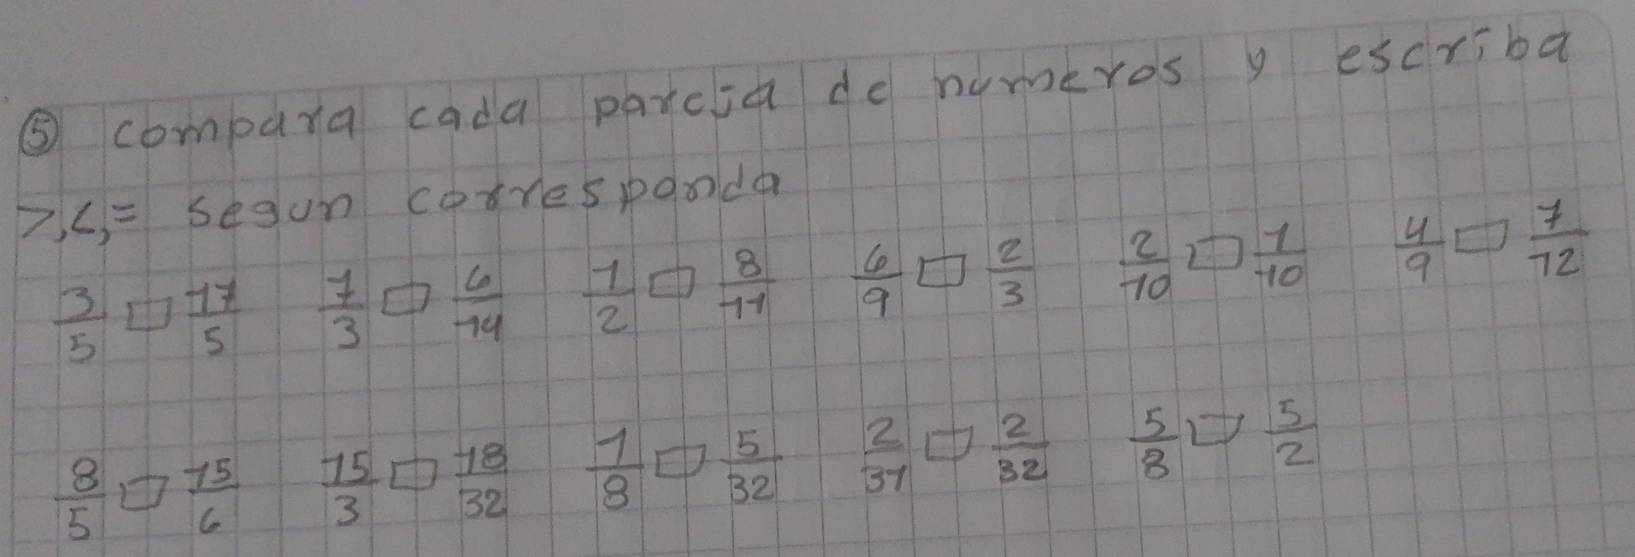 ⑤ compara cada parcia de numeros y escriba
>,<,= segun corresponda
3/5 □ 17/5 1/3 □ 6/14 1/2 □ 8/11 6/9 □ 2/3 2/10 □ 1/10 4/9 □ 7/12
8/5 □ 15/6 15/3 □ 18/32 1/8 □ 5/32 2/31 □ 2/32 5/8 □ 5/2